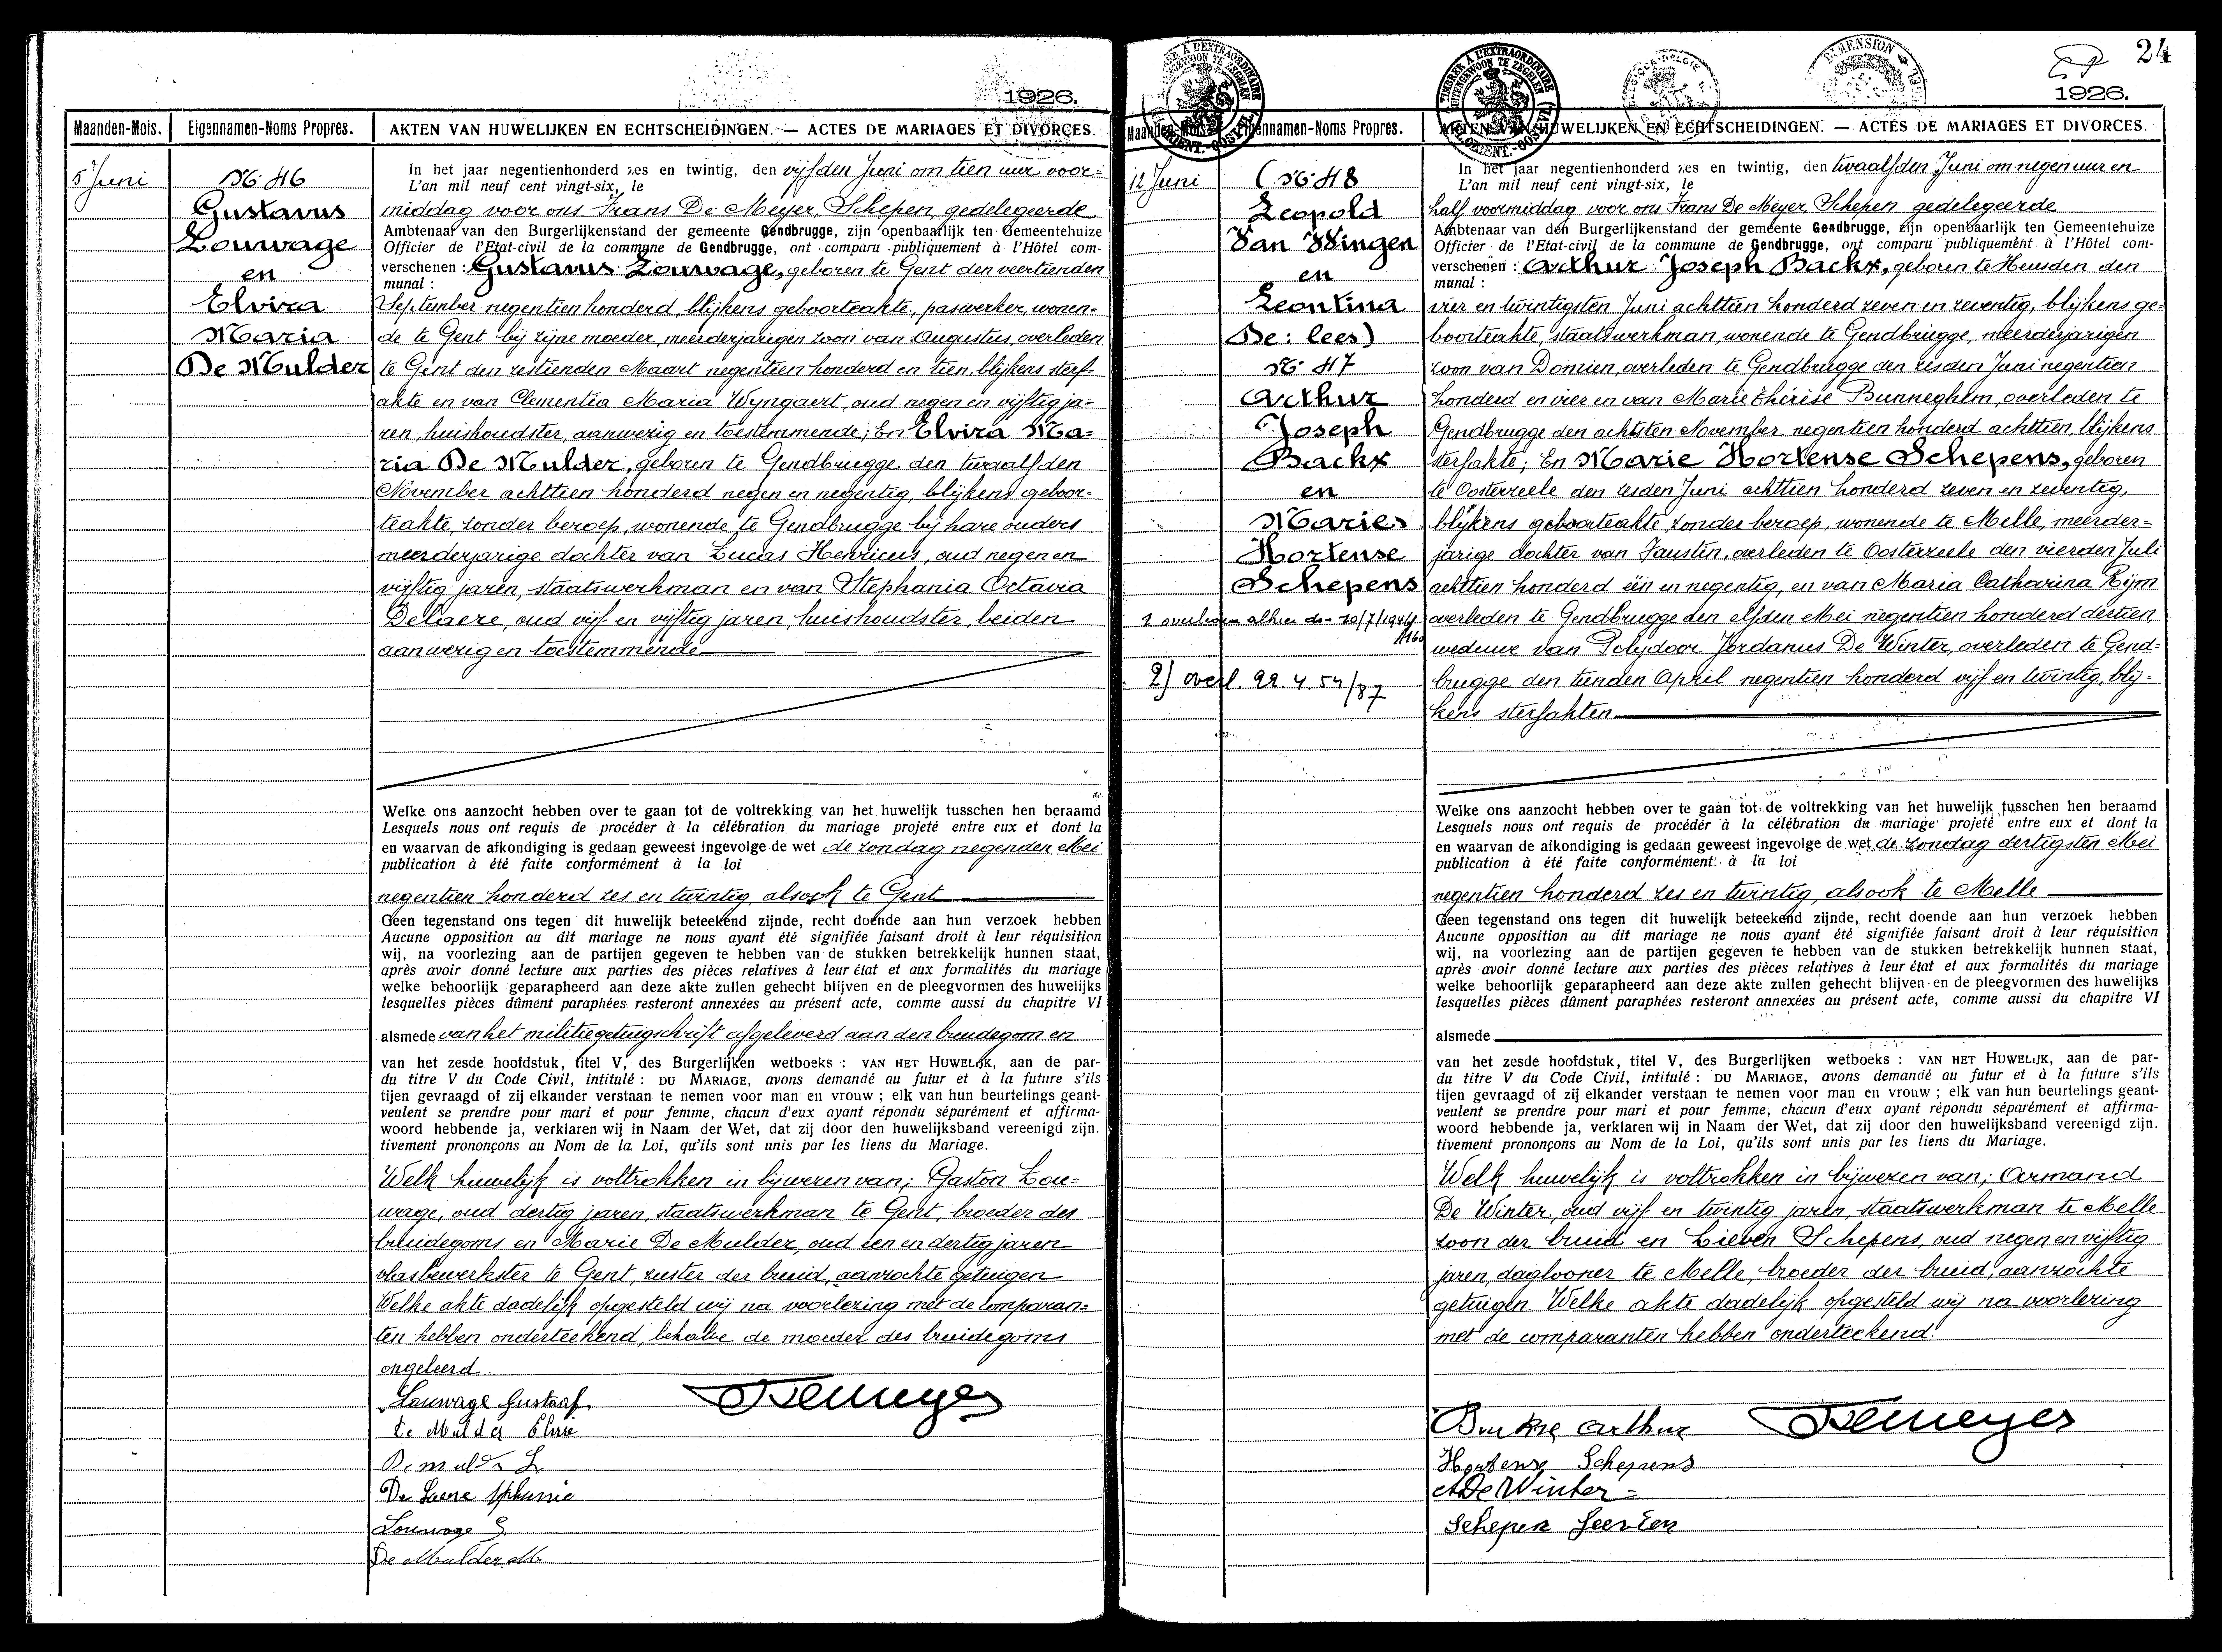 1926.
Maanden-Mois. Eigennamen-Noms Propres. AKTEN VAN HUWELIJKEN EN ECHTSCHEIDINGEN. — ACTES DE MARIAGES ET DIVORCES.
5 Juni
No 46
Gustavus
Louwage
en
Elvira
Maria
De Mulder
In het jaar negentienhonderd zes en twintig, den vijfden Juni om tien uur voor=
L'an mil neuf cent vingt-six, le
middag voor ons Frans De Meyer, Schepen, gedelegeerde
Ambtenaar van den Burgerlijkenstand der gemeente Gendbrugge, zijn openbaarlijk ten Gemeentehuize
Officier de l'Etat-civil de la commune de Gendbrugge, ont comparu publiquement à l'Hôtel com-
verschenen : Gustavus Louwage, geboren te Gent den veertienden
munal :
September negentien honderd, blijkens geboorteakte, paswerker, wonen-
de te Gent bij zijne moeder, meerderjarigen zoon van Augustus, overleden
te Gent den zestienden Maart negentien honderd en tien, blijkens sterf-
akte en van Clementia Maria Wyngaert, oud negen en vijftig ja=
ren, huishoudster, aanwezig en toestemmende; En Elvira Ma=
ria De Mulder, geboren te Gendbrugge den twaalfden
November achttien honderd negen en negentig, blijkens geboor-
teakte, zonder beroep, wonende te Gendbrugge bij hare ouders
meerderjarige dochter van Lucas Henricus, oud negen en
vijftig jaren, staatswerkman en van Stephania Octavia
Delaere, oud vijf en vijftig jaren, huishoudster, beiden
aanwezig en toestemmende
Welke ons aanzocht hebben over te gaan tot de voltrekking van het huwelijk tusschen hen beraamd
Lesquels nous ont requis de procéder à la célébration du mariage projeté entre eux et dont la
en waarvan de afkondiging is gedaan geweest ingevolge de wet de zondag negenden Mei
publication à été faite conformément à la loi
negentien honderd zes en twintig, alsook te Gent
Geen tegenstand ons tegen dit huwelijk beteekend zijnde, recht doende aan hun verzoek hebben
Aucune opposition au dit mariage ne nous ayant été signifiée faisant droit à leur réquisition
wij, na voorlezing aan de partijen gegeven te hebben van de stukken betrekkelijk hunnen staat,
après avoir donné lecture aux parties des pièces relatives à leur état et aux formalités du mariage
welke behoorlijk geparapheerd aan deze akte zullen gehecht blijven en de pleegvormen des huwelijks
lesquelles pièces dûment paraphées resteront annexées au présent acte, comme aussi du chapitre VI
alsmede van het militiegetuigschrift afgeleverd aan den bruidegom en
van het zesde hoofdstuk, titel V, des Burgerlijken wetboeks : VAN HET HUWELIJK, aan de par-
du titre V du Code Civil, intitulé : DU MARIAGE, avons demandé au futur et à la future s'ils
tijen gevraagd of zij elkander verstaan te nemen voor man en vrouw ; elk van hun beurtelings geant-
veulent se prendre pour mari et pour femme, chacun d'eux ayant répondu séparément et affirma-
woord hebbende ja, verklaren wij in Naam der Wet, dat zij door den huwelijksband vereenigd zijn.
tivement prononçons au Nom de la Loi, qu'ils sont unis par les liens du Mariage.
Welk huwelijk is voltrokken in bijwezen van; Gaston Lou=
wage, oud dertig jaren, staatswerkman te Gent, broeder des
bruidegoms en Marie De Mulder, oud een en dertig jaren
vlasbewerkster te Gent, zuster der bruid, aanzochte getuigen
Welke akte dadelijk opgesteld wij na voorlezing met de comparan=
ten hebben onderteekend, behalve de moeder des bruidegoms
ongeleerd.
Louwage Gustaaf Demeyer
De Mulder Elvire
Demulder L.
De Laere Sphanie
Louwage G.
De Mulder M.
24
1926.
Maanden-Mois. Eigennamen-Noms Propres. AKTEN VAN HUWELIJKEN EN ECHTSCHEIDINGEN. — ACTES DE MARIAGES ET DIVORCES.
12 Juni
(No 48
Leopold
Van Wingen
en
Leontina
De: lees)
No 47
Arthur
Joseph
Backx
en
Marie
Hortense
Schepens
1 overleden alhier de 20/7/1944
/160
2) overl. 22.4.54/87
In het jaar negentienhonderd zes en twintig, den twaalfden Juni om negen uur en
L'an mil neuf cent vingt-six, le
half voormiddag voor ons Frans De Meyer, Schepen gedelegeerde
Ambtenaar van den Burgerlijkenstand der gemeente Gendbrugge, zijn openbaarlijk ten Gemeentehuize
Officier de l'Etat-civil de la commune de Gendbrugge, ont comparu publiquement à l'Hôtel com-
verschenen : Arthur Joseph Backx, geboren te Heusden den
munal :
vier en twintigsten Juni achttien honderd zeven en zeventig, blijkens ge=
boorteakte, staatswerkman, wonende te Gendbrugge, meerderjarigen
zoon van Domien, overleden te Gendbrugge den zesden Juni negentien
honderd en vier en van Marie Thérèse Bunneghem, overleden te
Gendbrugge den achtsten November negentien honderd achttien, blijkens
sterfakte; En Marie Hortense Schepens, geboren
te Oosterzeele den zesden Juni achttien honderd zeven en zeventig,
blijkens geboorteakte, zonder beroep, wonende te Melle, meerder=
jarige dochter van Faustin, overleden te Oosterzeele den vierden Juli
achttien honderd één en negentig, en van Maria Catharina Rijm
overleden te Gendbrugge den elfden Mei negentien honderd dertien,
weduwe van Polydoor Jordanus De Winter, overleden te Gend=
brugge den tienden April negentien honderd vijf en twintig, blij=
kens sterfakten
Welke ons aanzocht hebben over te gaan tot de voltrekking van het huwelijk tusschen hen beraamd
Lesquels nous ont requis de procéder à la célébration du mariage projeté entre eux et dont la
en waarvan de afkondiging is gedaan geweest ingevolge de wet de zondag dertigsten Mei
publication à été faite conformément à la loi
negentien honderd zes en twintig, alsook te Melle
Geen tegenstand ons tegen dit huwelijk beteekend zijnde, recht doende aan hun verzoek hebben
Aucune opposition au dit mariage ne nous ayant été signifiée faisant droit à leur réquisition
wij, na voorlezing aan de partijen gegeven te hebben van de stukken betrekkelijk hunnen staat,
après avoir donné lecture aux parties des pièces relatives à leur état et aux formalités du mariage
welke behoorlijk geparapheerd aan deze akte zullen gehecht blijven en de pleegvormen des huwelijks
lesquelles pièces dûment paraphées resteront annexées au présent acte, comme aussi du chapitre VI
alsmede
van het zesde hoofdstuk, titel V, des Burgerlijken wetboeks : VAN HET HUWELIJK, aan de par-
du titre V du Code Civil, intitulé : DU MARIAGE, avons demandé au futur et à la future s'ils
tijen gevraagd of zij elkander verstaan te nemen voor man en vrouw ; elk van hun beurtelings geant-
veulent se prendre pour mari et pour femme, chacun d'eux ayant répondu séparément et affirma-
woord hebbende ja, verklaren wij in Naam der Wet, dat zij door den huwelijksband vereenigd zijn.
tivement prononçons au Nom de la Loi, qu'ils sont unis par les liens du Mariage.
Welk huwelijk is voltrokken in bijwezen van; Armand
De Winter, oud vijf en twintig jaren, staatswerkman te Melle
zoon der bruid en Lieven Schepens, oud negen en vijftig
jaren, daglooner te Melle, broeder der bruid, aanzochte
getuigen. Welke akte dadelijk opgesteld wij na voorlezing
met de comparanten hebben onderteekend.
Arthur Demeyer
Hortense Schepens
A De Winter
Schepen